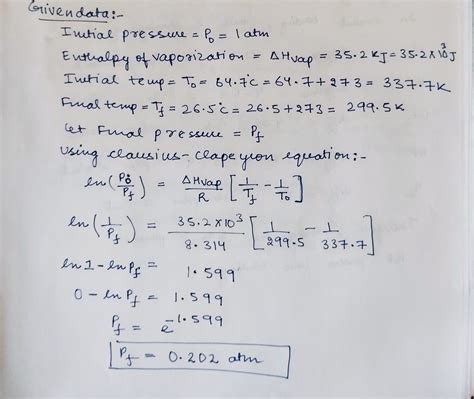 Given data:-
Initial pressure = P₀ = 1 atm
Enthalpy of vaporization = ΔHvap = 35.2 KJ = 35.2 x 10³ J
Initial temp = T₀ = 64.7°C = 64.7 + 273 = 337.7K
Final temp = T_f = 26.5°C = 26.5 + 273 = 299.5K
let Final pressure = P_f
using clausius-Clapeyron equation:-
ln(P₀/P_f) = ΔHvap/R [1/T_f - 1/T₀]
ln(1/P_f) = 35.2 x 10³/8.314 [1/299.5 - 1/337.7]
ln 1 - ln P_f = 1.599
0 - ln P_f = 1.599
P_f = e^-1.599
P_f = 0.202 atm